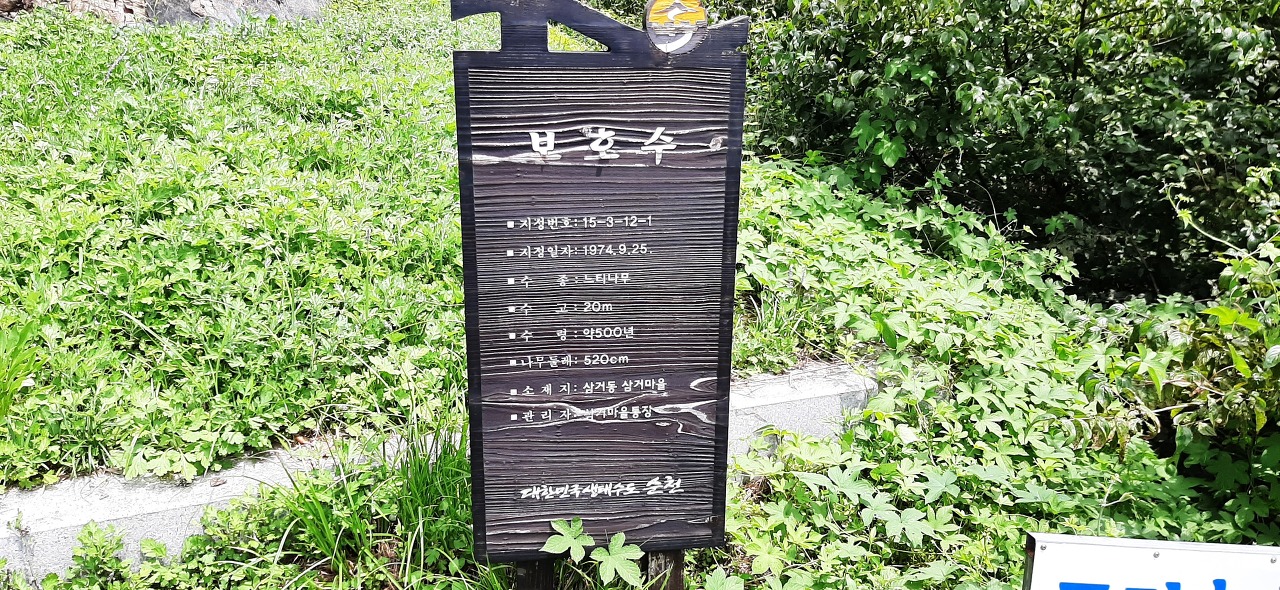 보호수
■ 지정번호 : 15-3-12-1
■ 지정일자 : 1974.9.25.
■ 수 종 : 느티나무
■ 수 고 : 20m
■ 수 령 : 약500년
■ 나무둘레 : 520cm
■ 소 재 지 : 삼거동 삼거마을
■ 관 리 자 : 삼거마을통장
대한민국생태수도 순천